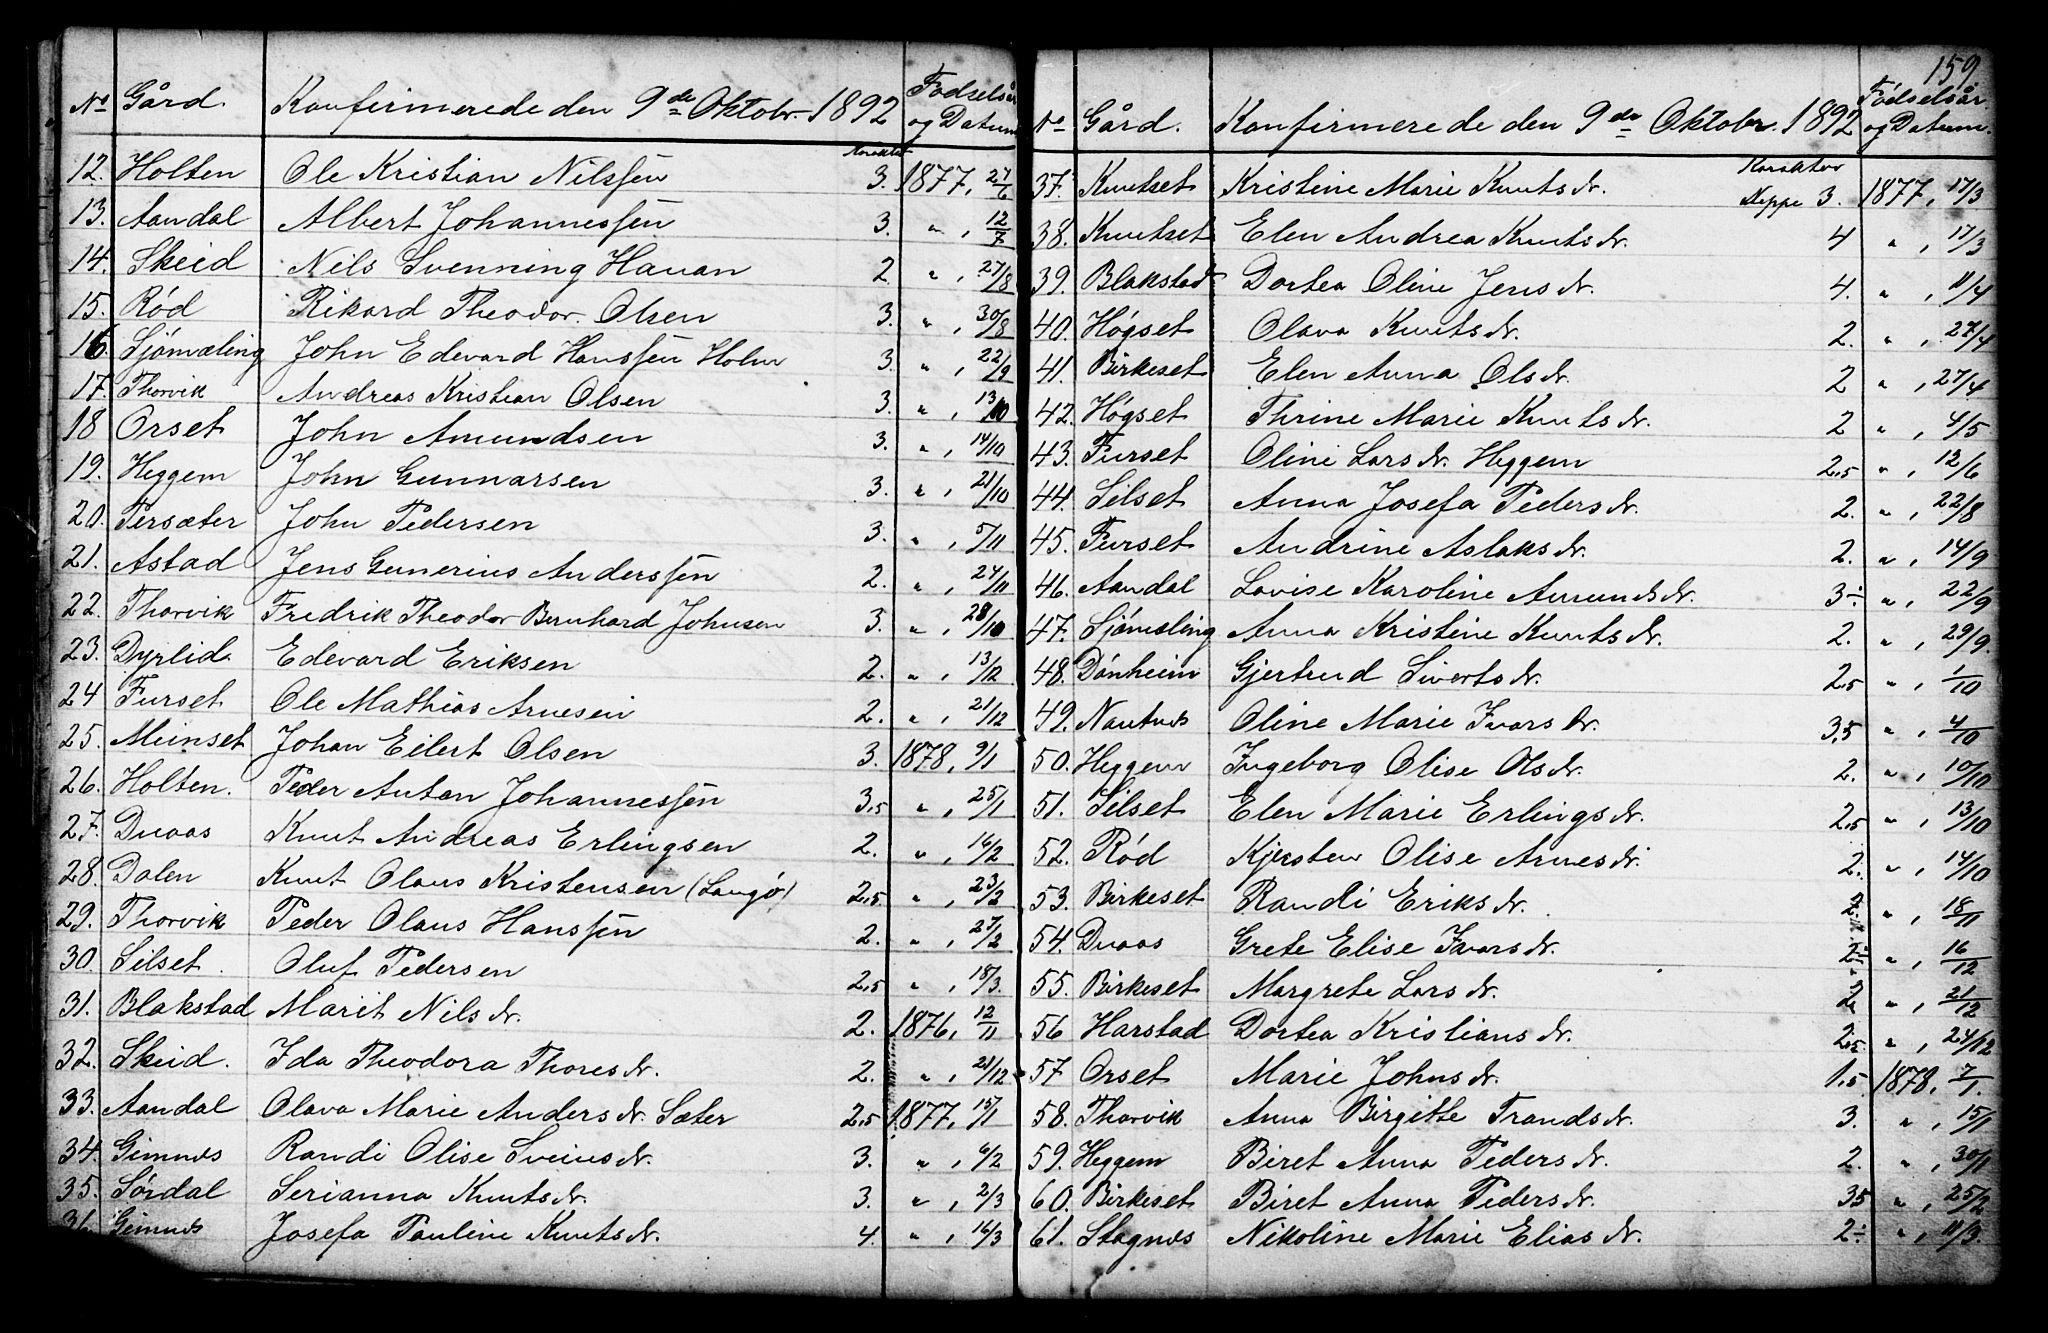 No Gård. Konfirmerede den 9de Oktobr. 1892 Fødselsår og Datum
Karakter
12. Holten Ole Kristian Nilssen 3. 1877, 27/6
13. Aandal Albert Johannessen 3. " , 12/7
14. Skeid Nils Svenning Havan 2 " , 27/8
15. Rød Rikard Theodor Olsen 3. " , 30/8
16. Sjømæling John Edevard Hanssen Holm 3. " , 22/9
17. Thorvik Andreas Kristian Olsen 3. " , 13/10
18 Orset John Amundsen 3. " , 14/10
19. Heggem John Gunnarsen 3. " , 21/10
20. Persæter John Pedersen 3. " , 5/11
21. Astad Jens Gunerius Anderssen 2. " , 24/11
22. Thorvik Fredrik Theodor Bernhard Johnsen 3. " , 28/10
23. Dyrlid. Edevard Eriksen 2. " , 13/12
24 Furset Ole Mathias Arnesen 2. " , 21/12
25. Meinset Johan Eilert Olsen 3. 1878, 9/1
26. Holten. Peder Anton Johannessen 3,5 " , 25/1
27. Duaas Knut Andreas Erlingsen 2. " , 16/2
28. Dalen Knut Olaus Kristensen (Langø) 2,5 " , 23/2
29. Thorvik Peder Olaus Hanssen 2. " , 27/2
30. Silset. Oluf Pedersen 2,5 " , 18/3.
31. Blakstad Marit Nilsdr. 2. 1876, 12/11
32. Skeid. Ida Theodora Thoresdr. 2. " , 21/12
33. Aandal Olava Marie Andersdr. Sæter 2,5 1877, 15/1
34. Gimnes Randi Olise Sveinsdr. 3. " , 6/2
35. Sørdal Serianna Knutsdr. 3. " , 2/3
36. Gimnes Josefa Pauline Knutsdr. 4. " , 16/3
159.
No Gård. Konfirmerede den 9de Oktobr. 1892 Fødselsår. og Datum.
Karakter
37. Knutset Kristine Marie Knutsdr. Neppe 3. 1877, 17/3
38. Knutset Elen Andrea Knutsdr. 4 " , 17/3
39. Blakstad Dortea Oline Jensdr. 4. " , 11/4
40. Høgset Olava Knutsdr. 2. " , 27/4
41. Birkeset Elen Anna Olsdr. 2 " , 27/4
42. Høgset Thrine Marie Knutsdr. 2 " , 4/5
43. Furset Oline Larsdr. Heggem 2,5 " , 12/6
44. Silset Anna Josefa Pedersdr. 2. " , 22/8
45. Furset Andrine Aslaksdr. 2. " , 14/9
46. Aandal Lovise Karoline Amundsdr. 3÷ " , 22/9
47. Sjømæling Anna Kristine Knutsdr. 2. " , 29/9.
48. Dønheim Gjertrud Sivertsdr. 2,5 " , 1/10
49. Nautnes Oline Marie Ivarsdr. 3,5 " , 4/10
50. Heggem Ingeborg Olise Olsdr. 2. " , 10/10
51. Silset Elen Marie Erlingsdr. 2,5 " , 13/10
52. Rød Kjersten Olise Arnesdr. 2. " , 14/10
53. Birkeset Randi Eriksdr. 2. " , 18/11
54. Duaas Grete Elise Ivarsdr. 2÷ " , 16/12
55. Birkeset Margrete Larsdr. 2 " , 21/12
56 Harstad Dortea Kristiansdr. 2,5. " , 24/12
57 Orset Marie Johnsdr. 1,5 1878, 7/1.
58. Thorvik Anna Birgitte Trandsdr. 3. " , 15/1
59. Heggem Beret Anna Pedersdr. 2. " , 30/1
60. Birkeset Beret Anna Pedersdr. 35 " , 25/2
61. Stagnes Nikoline Marie Eliasdr. 2÷ " , 11/3.